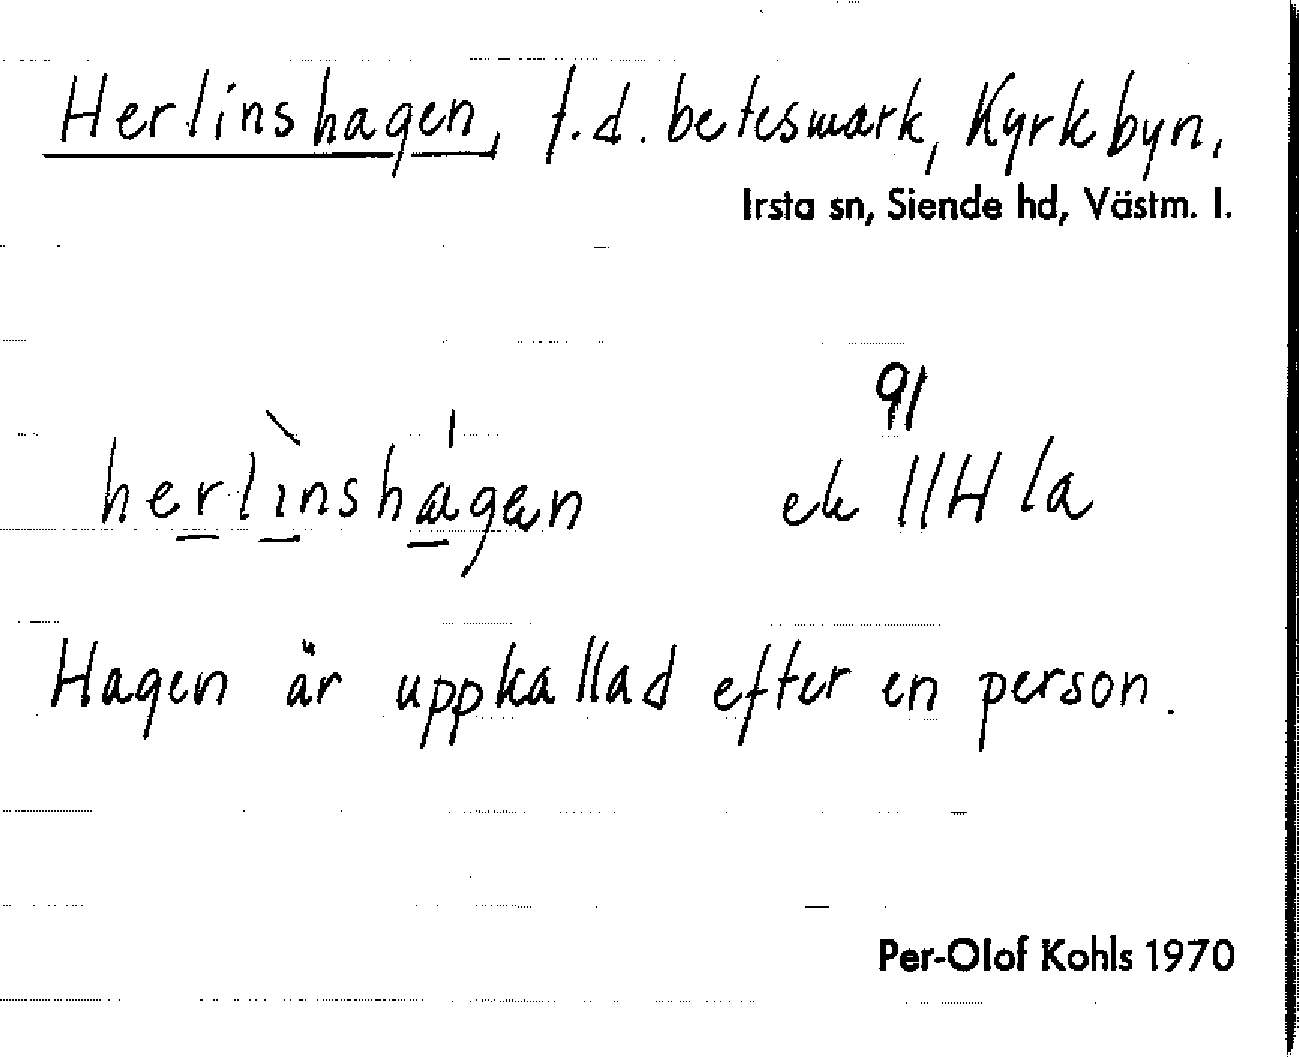 Herlinshagen, f.d. betesmark, Kyrkbyn,
Irsta sn, Siende hd, Västm. l.
91
herlìnshágæn ek 11H 1a
Hagen är uppkallad efter en person.
Per-Olof Kohls 1970